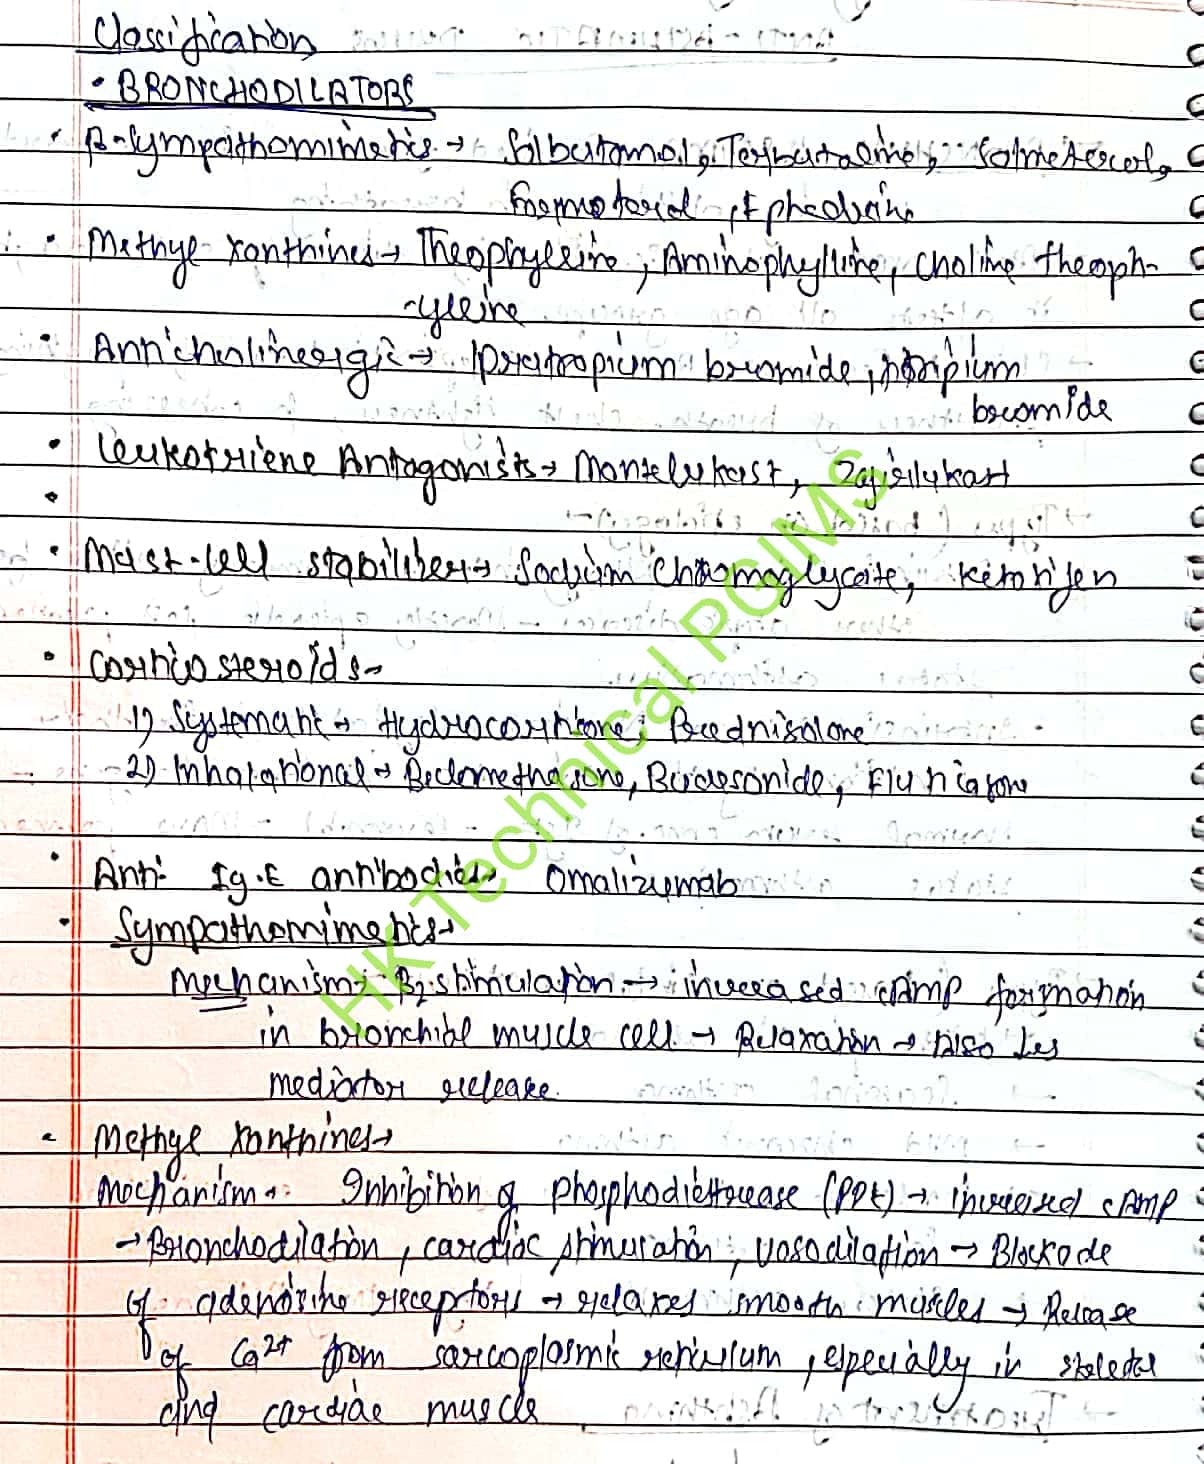 Classification
• BRONCHODILATORS
• β-sympathomimetics → Salbutamol, Terbutaline, Salmeterol,
Formoterol, Ephedrine
• Methyl xanthines → Theophylline, Aminophylline, Choline theoph-
-ylline
• Anticholinergic → Ipratropium bromide,
bromide
• Leukotriene Antagonists → Montelukast, Zafirlukast
•
• Mast-cell stabilizer → Sodium Chromoglycate, Ketotifen
• Corticosteroids →
1) Systemant → Hydrocortisone, Prednisolone
2) Inhalational → Beclomethasone, Budesonide, Fluticasone
• Anti- Ig.E antibodies → Omalizumab
• Sympathomimetics →
Mechanism → β2 stimulation → increased cAMP formation
in bronchial muscle cell → Relaxation → Also ↓es
mediator release.
- Methyl Xanthines →
Mechanism → Inhibition of phosphodiesterase (PDE) → increased cAMP
→ Bronchodilation, cardiac stimulation, vasodilation → Blockade
of adenosine receptors → relaxes smooth muscles → Release
of Ca2+ from sarcoplasmic reticulum, especially in skeletal
and cardiac muscle
HK Technical PGIMS